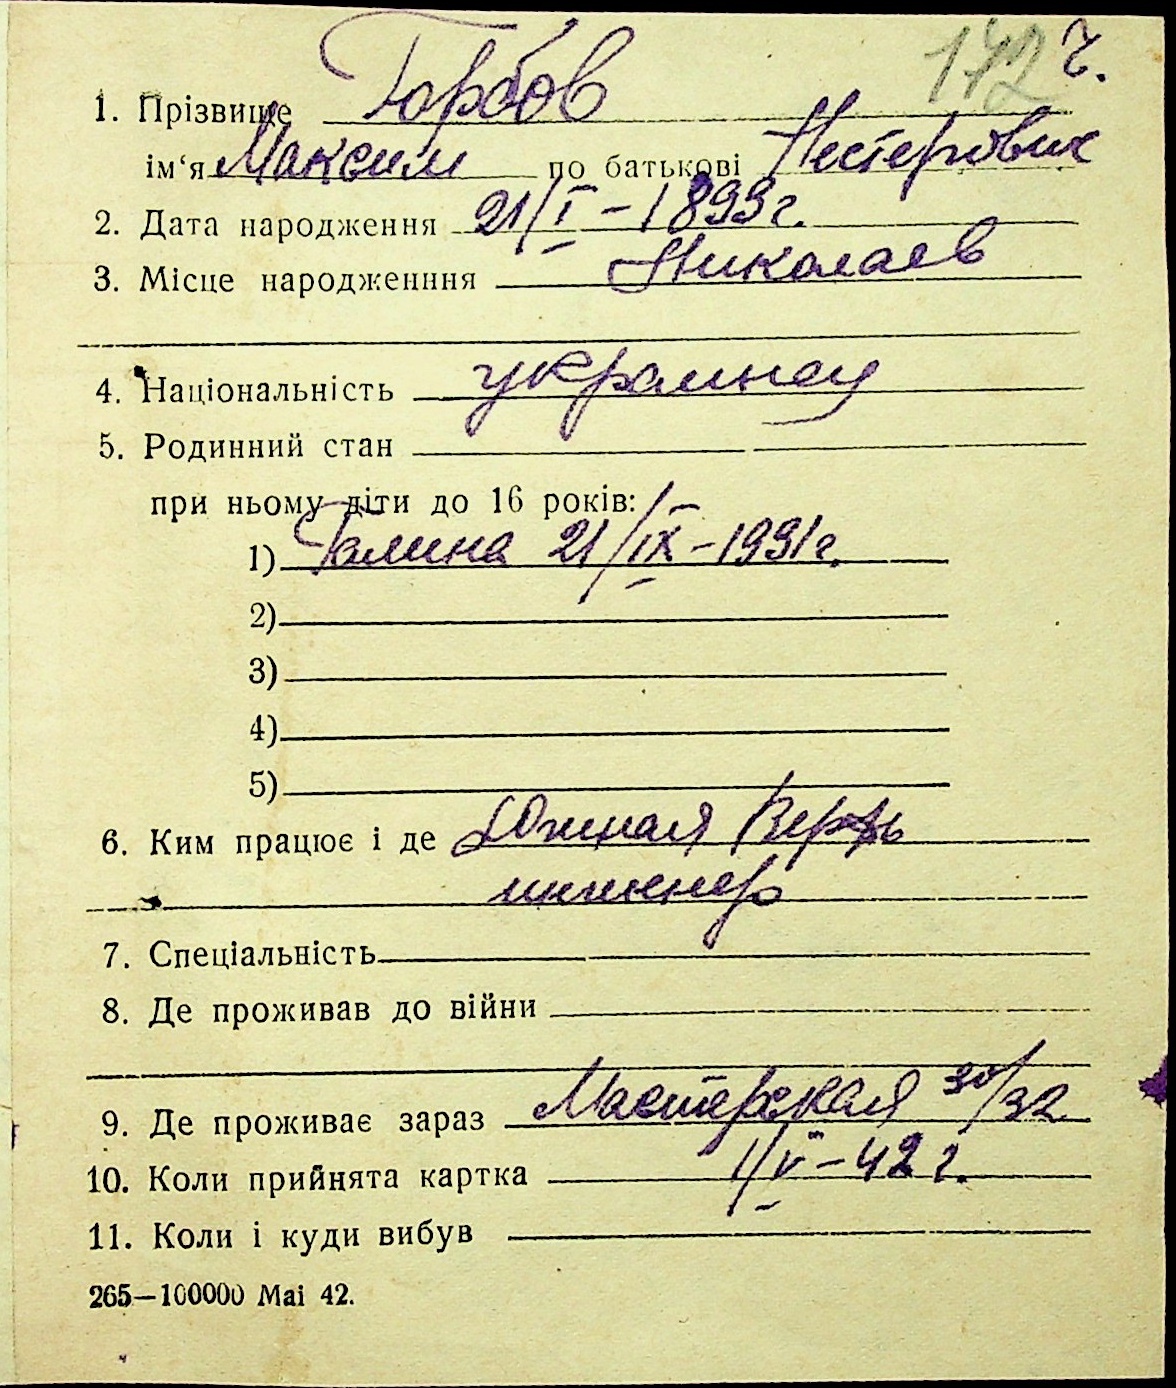 172 г.
1. Прізвище Горбов
ім'я Максим по батькові Нестерович
2. Дата народження 21/I – 1899 г.
3. Місце народженння Николаев
4. Національність украинец
5. Родинний стан
при ньому діти до 16 років:
1) Галина 21/IX – 1931 г.
2)
3)
4)
5)
6. Ким працює і де Южная Верфь
инженер
7. Спеціальність
8. Де проживав до війни
9. Де проживає зараз Мастерская 30/32
10. Коли прийнята картка 1/V – 42 г.
11. Коли і куди вибув
265—100000 Mai 42.